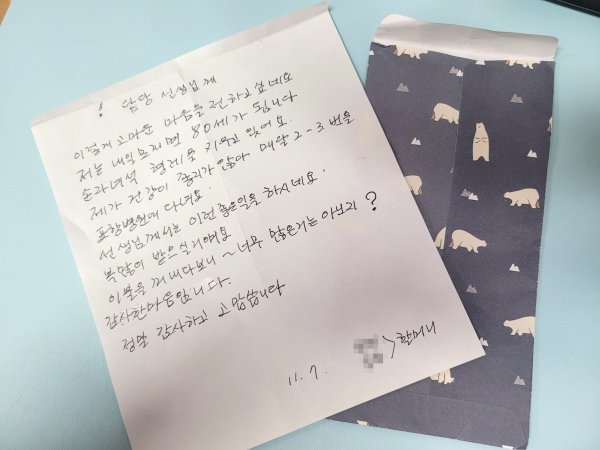 ! 담당 선생님께
이렇게 고마운 마음을 전하고 싶네요
저는 내일모래면 80세가 됩니다
손자녀석 형제를 키우고 있어요.
제가 건강이 좋지가 않아 매달 2-3번을
포항병원에 다녀요.
선생님께서는 이런 좋은일을 하시네요.
복많이 받으실거예요
이불을 꺼내다보니 ~ 너무 많은거는 아닌지?
감사한마음입니다.
정말 감사하고 고맙습니다
11. 7. 할머니